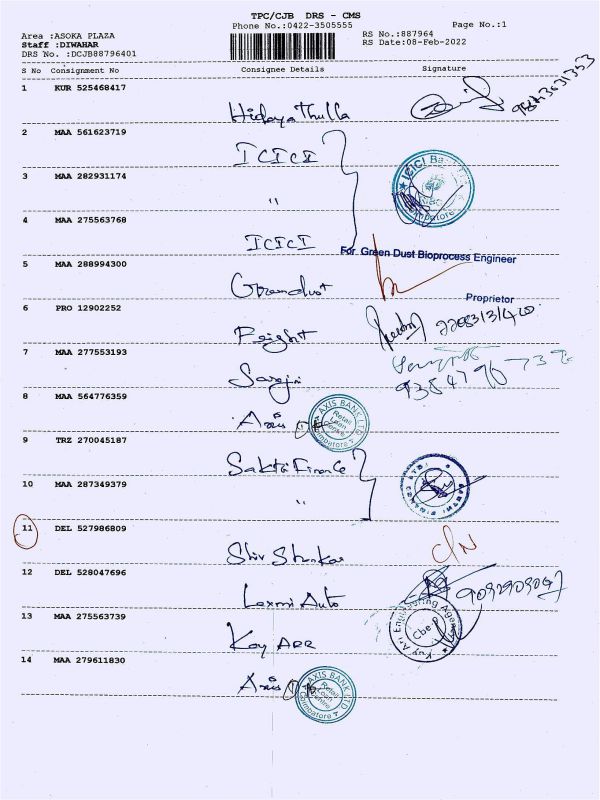 TPC/CJB DRS - CMS
Phone No.:0422-3505555
Page No.:1
Area :ASOKA PLAZA
RS No.:887964
Staff :DIWAHAR
RS Date:08-Feb-2022
DRS No. :DCJB88796401
S No Consignment No Consignee Details Signature
1 KUR 525468417
Hidaya Thulla
2 MAA 561623719
ICICI
ICICI Ba
Coimbatore
3 MAA 282931174
"
4 MAA 275563768
ICICI
For Green Dust Bioprocess Engineer
5 MAA 288994300
Greendust
Proprietor
6 PRO 12902252
7 MAA 277553193
Sarojini
8 MAA 564776359
Axis
AXIS BANK LTD
Retail
Loan
Centre
Coimbatore
9 TRZ 270045187
Sakthi Finance
10 MAA 287349379
"
11 DEL 527986809
Shiv Shankar
12 DEL 528047696
Laxmi Auto
9092909047
13 MAA 275563739
Kay ARR
Kay Ari Engineering Agency
Cbe
14 MAA 279611830
Axis
AXIS BANK LTD
Retail
Loan
Centre
Coimbatore